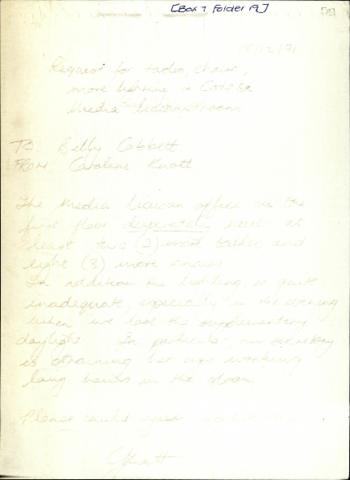 [Box 7 Folder 19]
18/12/91
Request for tables, chairs,
more lighting in
Media
To Billy Cobbett
From Caroline Knott
The Media Liaison office on the
first floor desperately needs at
least two (2) more tables and
eight (8) more chairs
In addition the lighting is quite
inadequate, especially in the evening
when we lose the supplementary
daylight. In particular, our secretary
is straining her eyes working
long hours in the
Please
CKnott